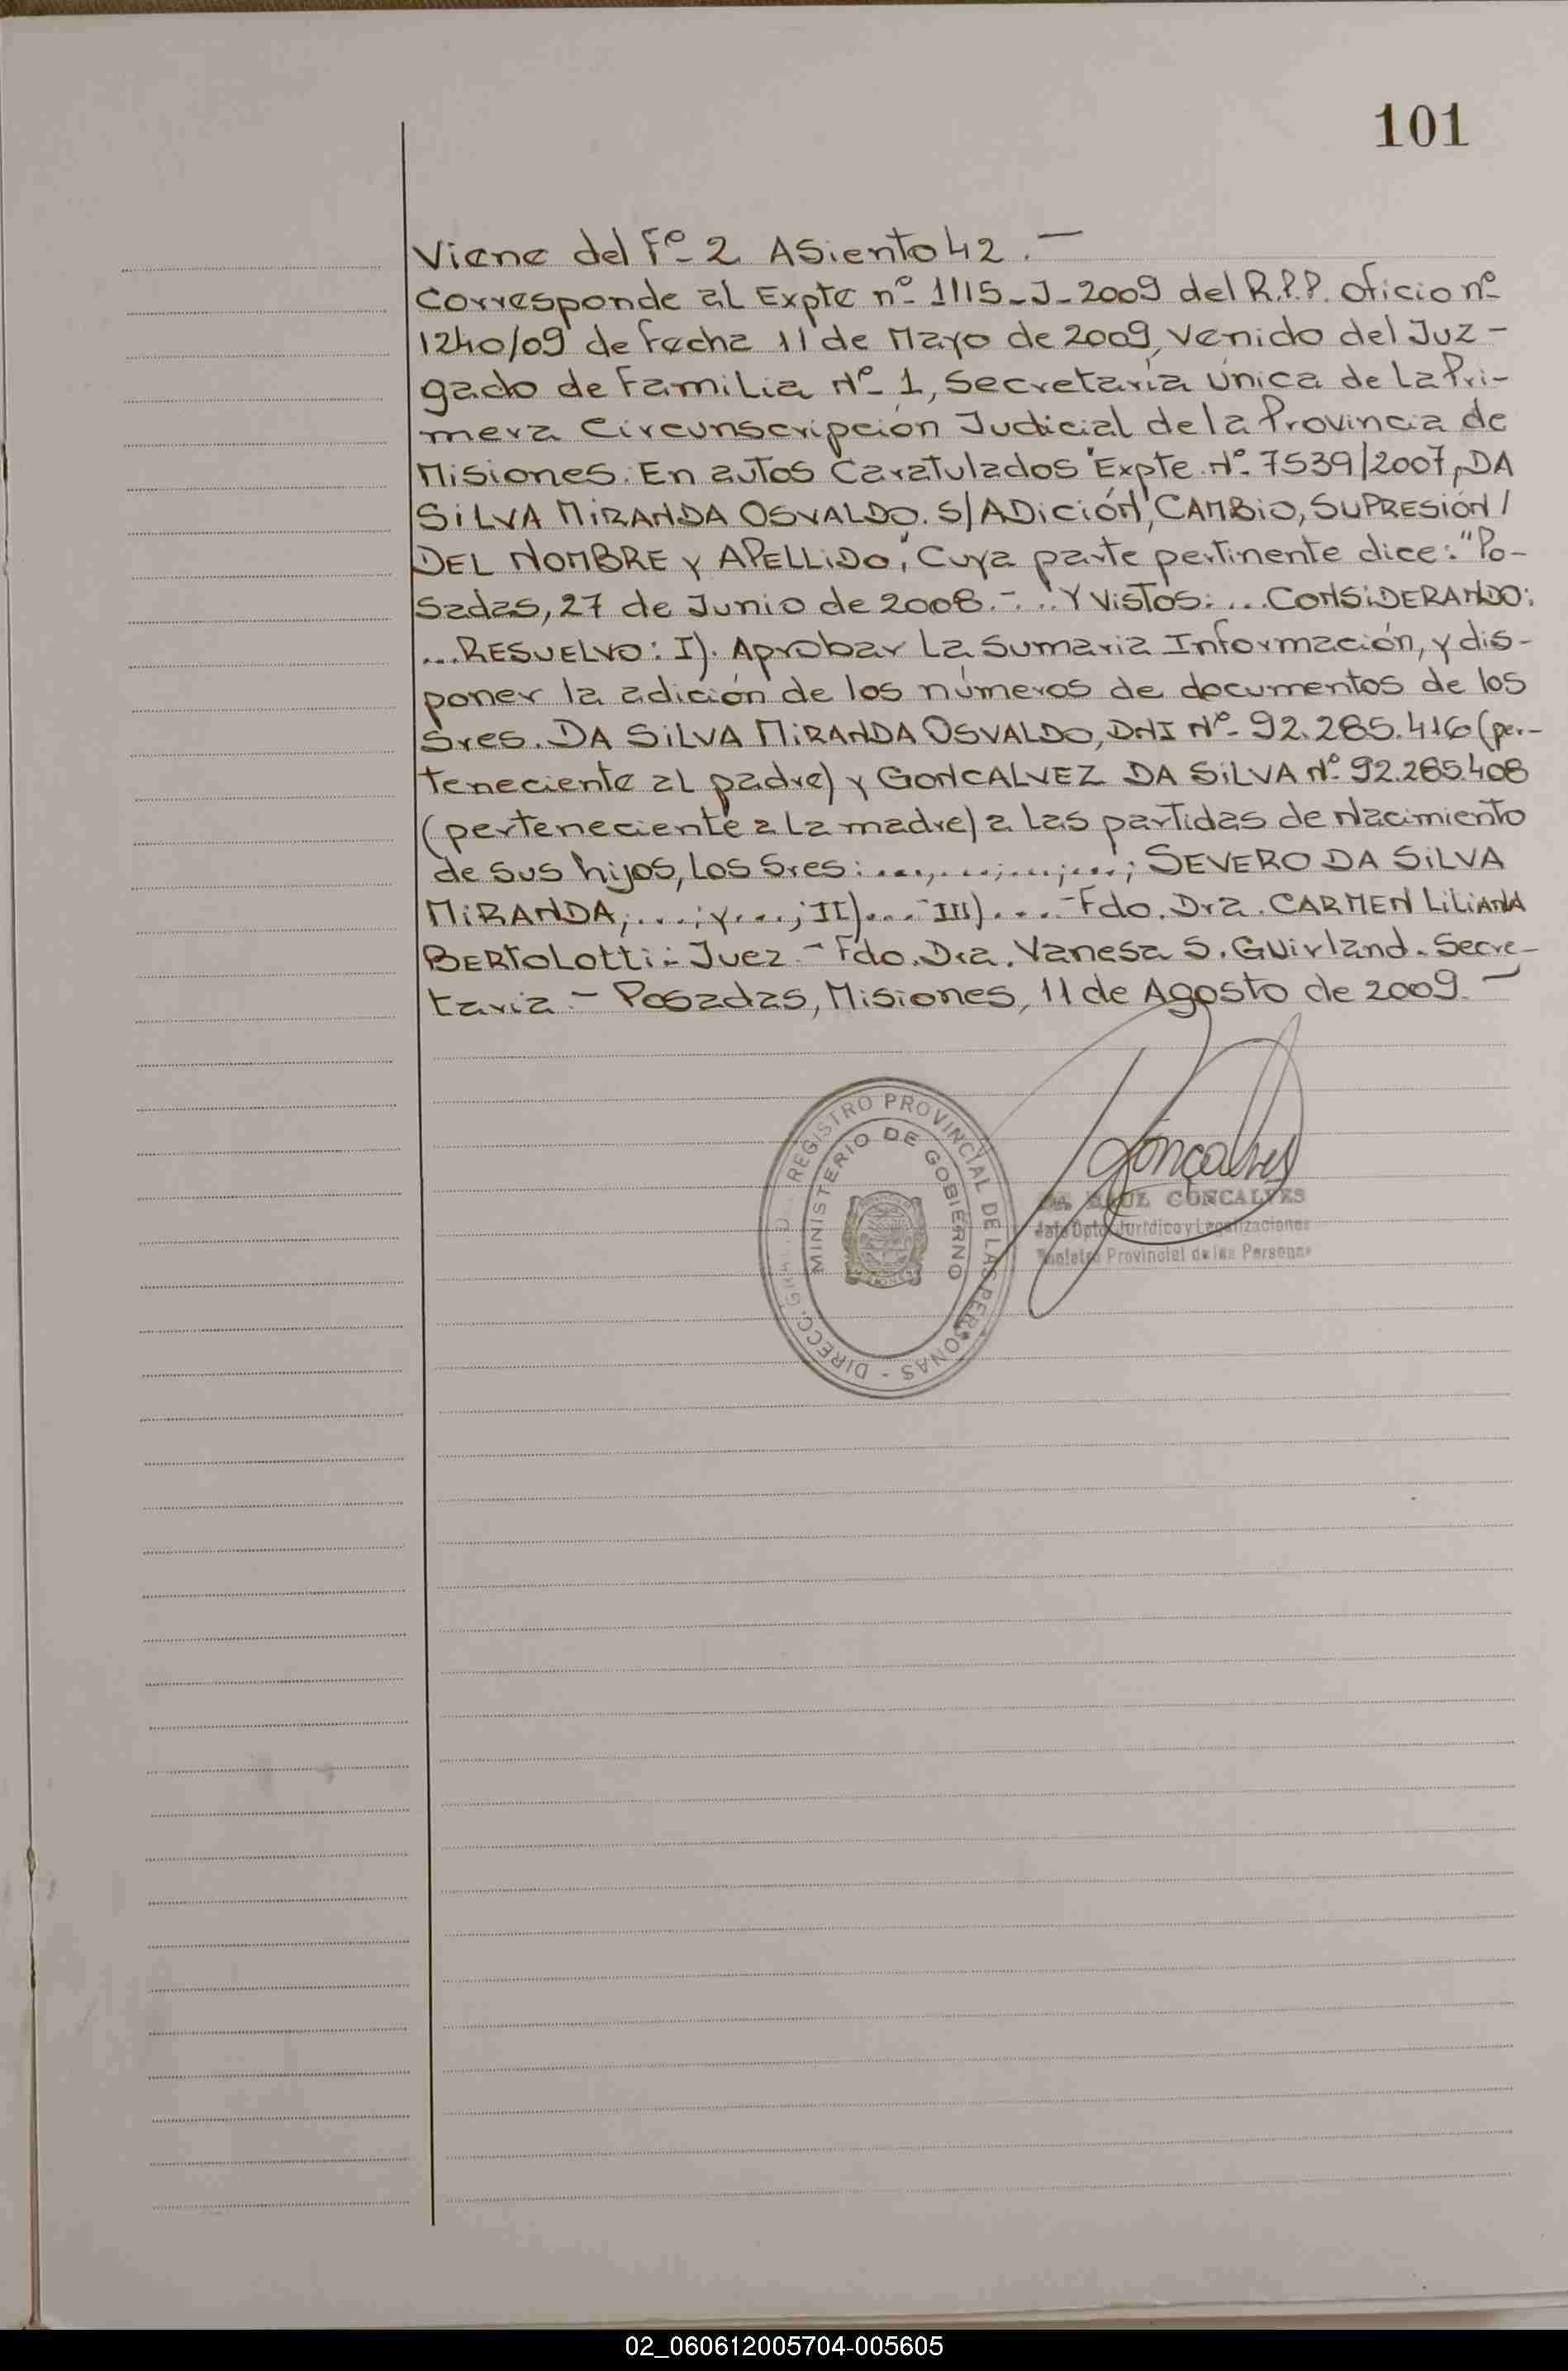 101
Viene del Fº 2 Asiento 42. —
Corresponde al Expte nº 1115-J-2009 del R.P.P. Oficio nº
1240/09 de fecha 11 de Mayo de 2009, venido del Juz-
gado de Familia Nº 1, Secretaría Única de La Pri-
mera Circunscripción Judicial de la Provincia de
Misiones. En autos Caratulados "Expte. Nº 7539/2007, DA
SILVA MIRANDA OSVALDO. S/ADICIÓN, CAMBIO, SUPRESIÓN /
DEL NOMBRE Y APELLIDO", Cuya parte pertinente dice: "Po-
sadas, 27 de Junio de 2008.-... Y Vistos:... CONSIDERANDO:
...RESUELVO: I). Aprobar La Sumaria Información, y dis-
poner la adición de los números de documentos de los
Sres. DA SILVA MIRANDA OSVALDO, DNI Nº 92.285.416 (per-
teneciente al padre) y GONCALVEZ DA SILVA Nº 92.285.408
(perteneciente a La madre) a Las partidas de Nacimiento
de sus hijos, Los Sres: ...,...;...;...; SEVERO DA SILVA
MIRANDA; ...; y...; II)...- III)....- Fdo. Dra. CARMEN LILIANA
BERTOLOTTI - Juez.- Fdo. Dra. Vanesa S. Guirland. Secre-
taria.- Posadas, Misiones, 11 de Agosto de 2009. —
REGISTRO PROVINCIAL DE LAS PERSONAS - DIRECC. GRAL.
MINISTERIO DE GOBIERNO
Gonçalves
RAUL GONCALVES
Jefe Dpto. Jurídico y Legalizaciones
Provincial de las Personas
02_060612005704-005605